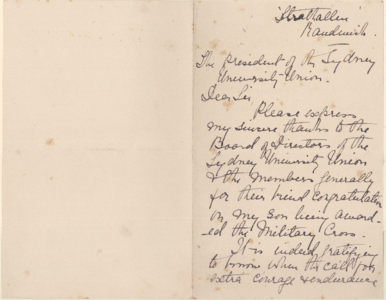 'Strathallen'
Randwick.
The President of the Sydney
University Union.
Dear Sir
Please express
my sincere thanks to the
Board of Directors of the
Sydney University Union
& the members generally
for their kind congratulation
on my son being award-
ed the Military Cross.
It is indeed gratifying
to honours when the call for
extra courage & endurance